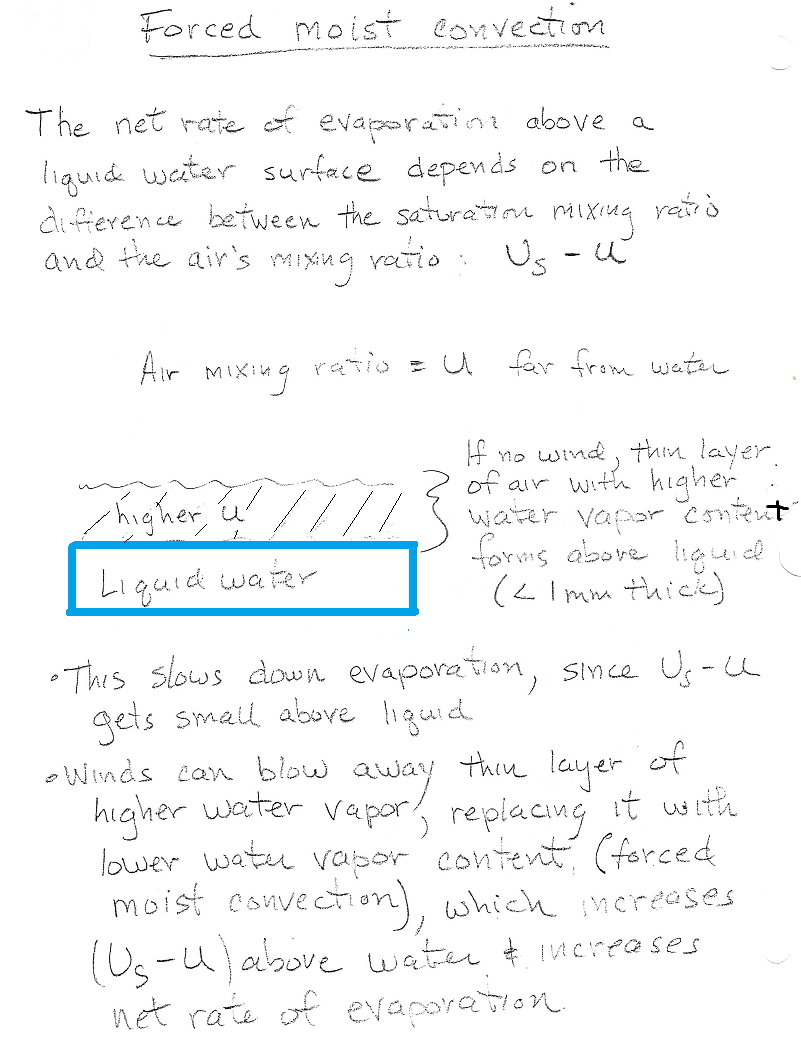 Forced moist convection
The net rate of evaporation above a
liquid water surface depends on the
difference between the saturation mixing ratio
and the air's mixing ratio: Us - u
Air mixing ratio = u far from water
If no wind, thin layer
of air with higher
water vapor content
forms above liquid
(< 1mm thick)
higher u
Liquid water
• This slows down evaporation, since Us - u
gets small above liquid
• Winds can blow away thin layer of
higher water vapor, replacing it with
lower water vapor content, (forced
moist convection), which increases
(Us - u) above water & increases
net rate of evaporation